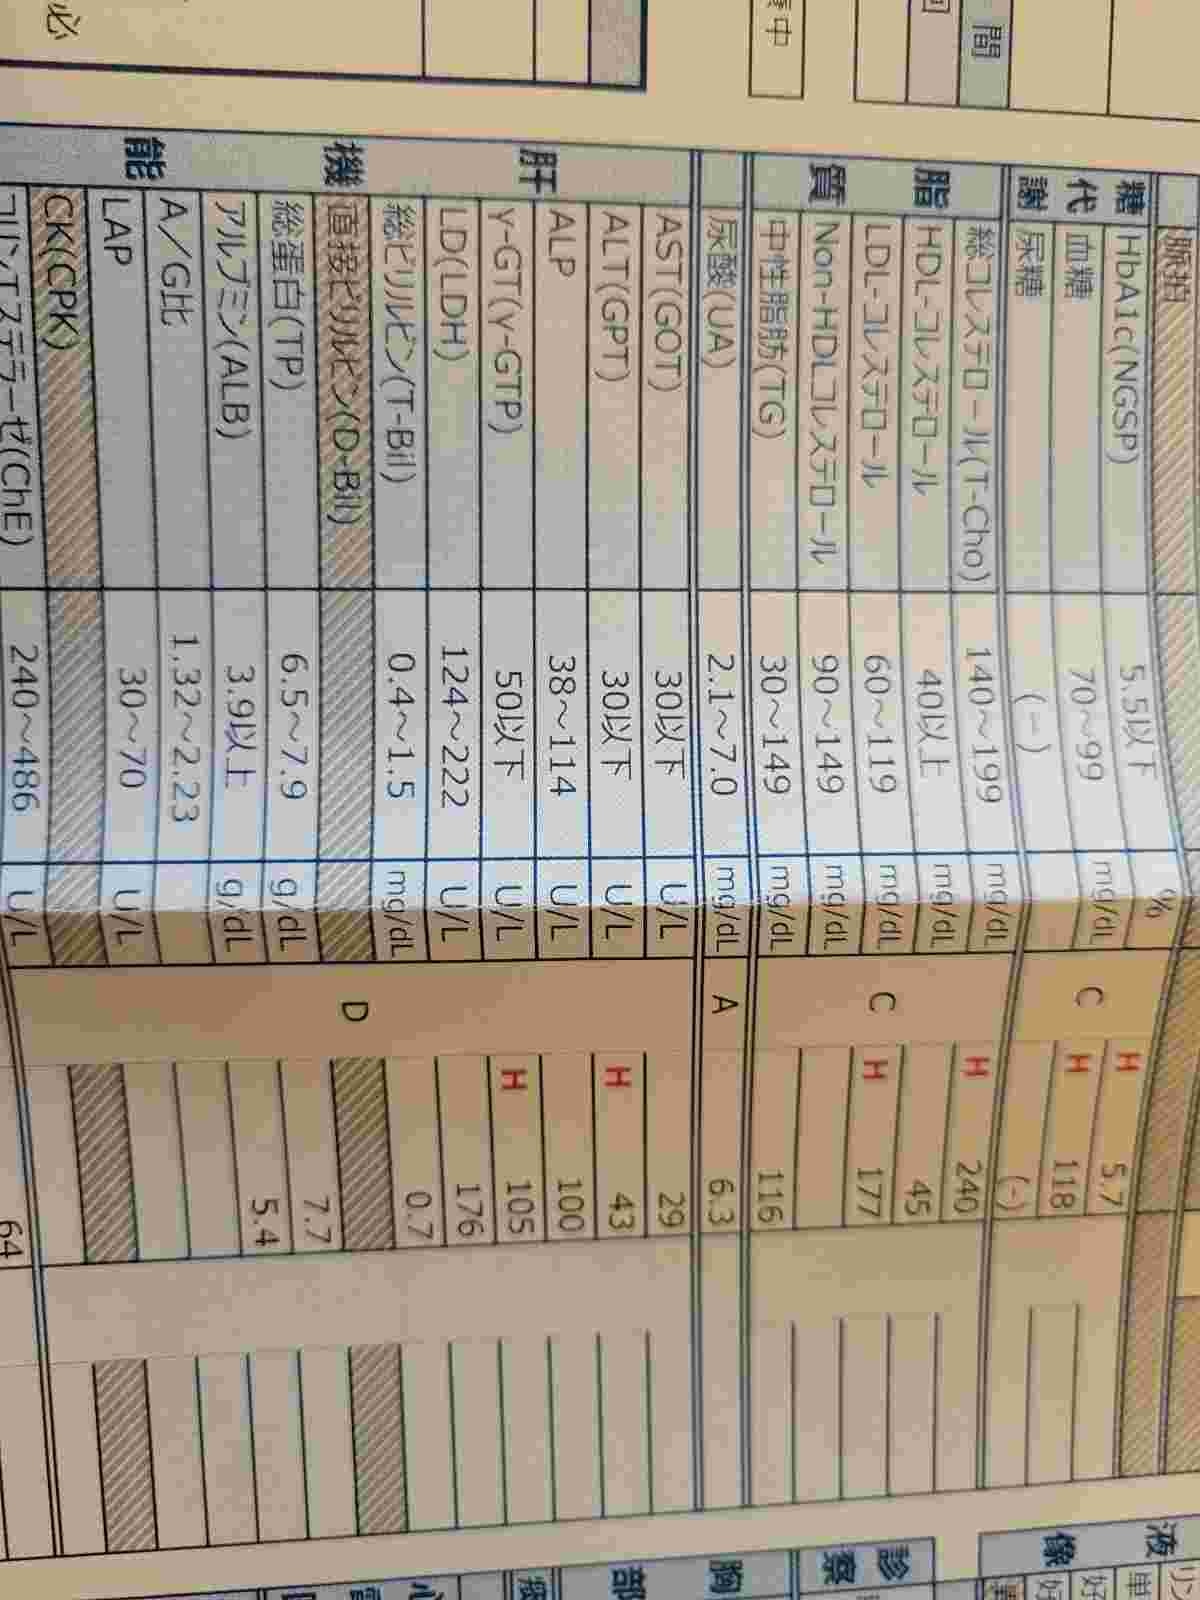 必
中
間
脈拍
糖代謝
HbA1c(NGSP) 5.5以下 % C H 5.7
血糖 70～99 mg/dL H 118
尿糖 (－) (-)
脂質
総コレステロール(T-Cho) 140～199 mg/dL C H 240
HDL-コレステロール 40以上 mg/dL 45
LDL-コレステロール 60～119 mg/dL H 177
Non-HDLコレステロール 90～149 mg/dL
中性脂肪(TG) 30～149 mg/dL 116
尿酸(UA) 2.1～7.0 mg/dL A 6.3
肝機能
AST(GOT) 30以下 U/L D 29
ALT(GPT) 30以下 U/L H 43
ALP 38～114 U/L 100
γ-GT(γ-GTP) 50以下 U/L H 105
LD(LDH) 124～222 U/L 176
総ビリルビン(T-Bil) 0.4～1.5 mg/dL 0.7
直接ビリルビン(D-Bil)
総蛋白(TP) 6.5～7.9 g/dL 7.7
アルブミン(ALB) 3.9以上 g/dL 5.4
A／G比 1.32～2.23
LAP 30～70 U/L
CK(CPK)
コリンエステラーゼ(ChE) 240～486 U/L
64
液
像
診察
胸部